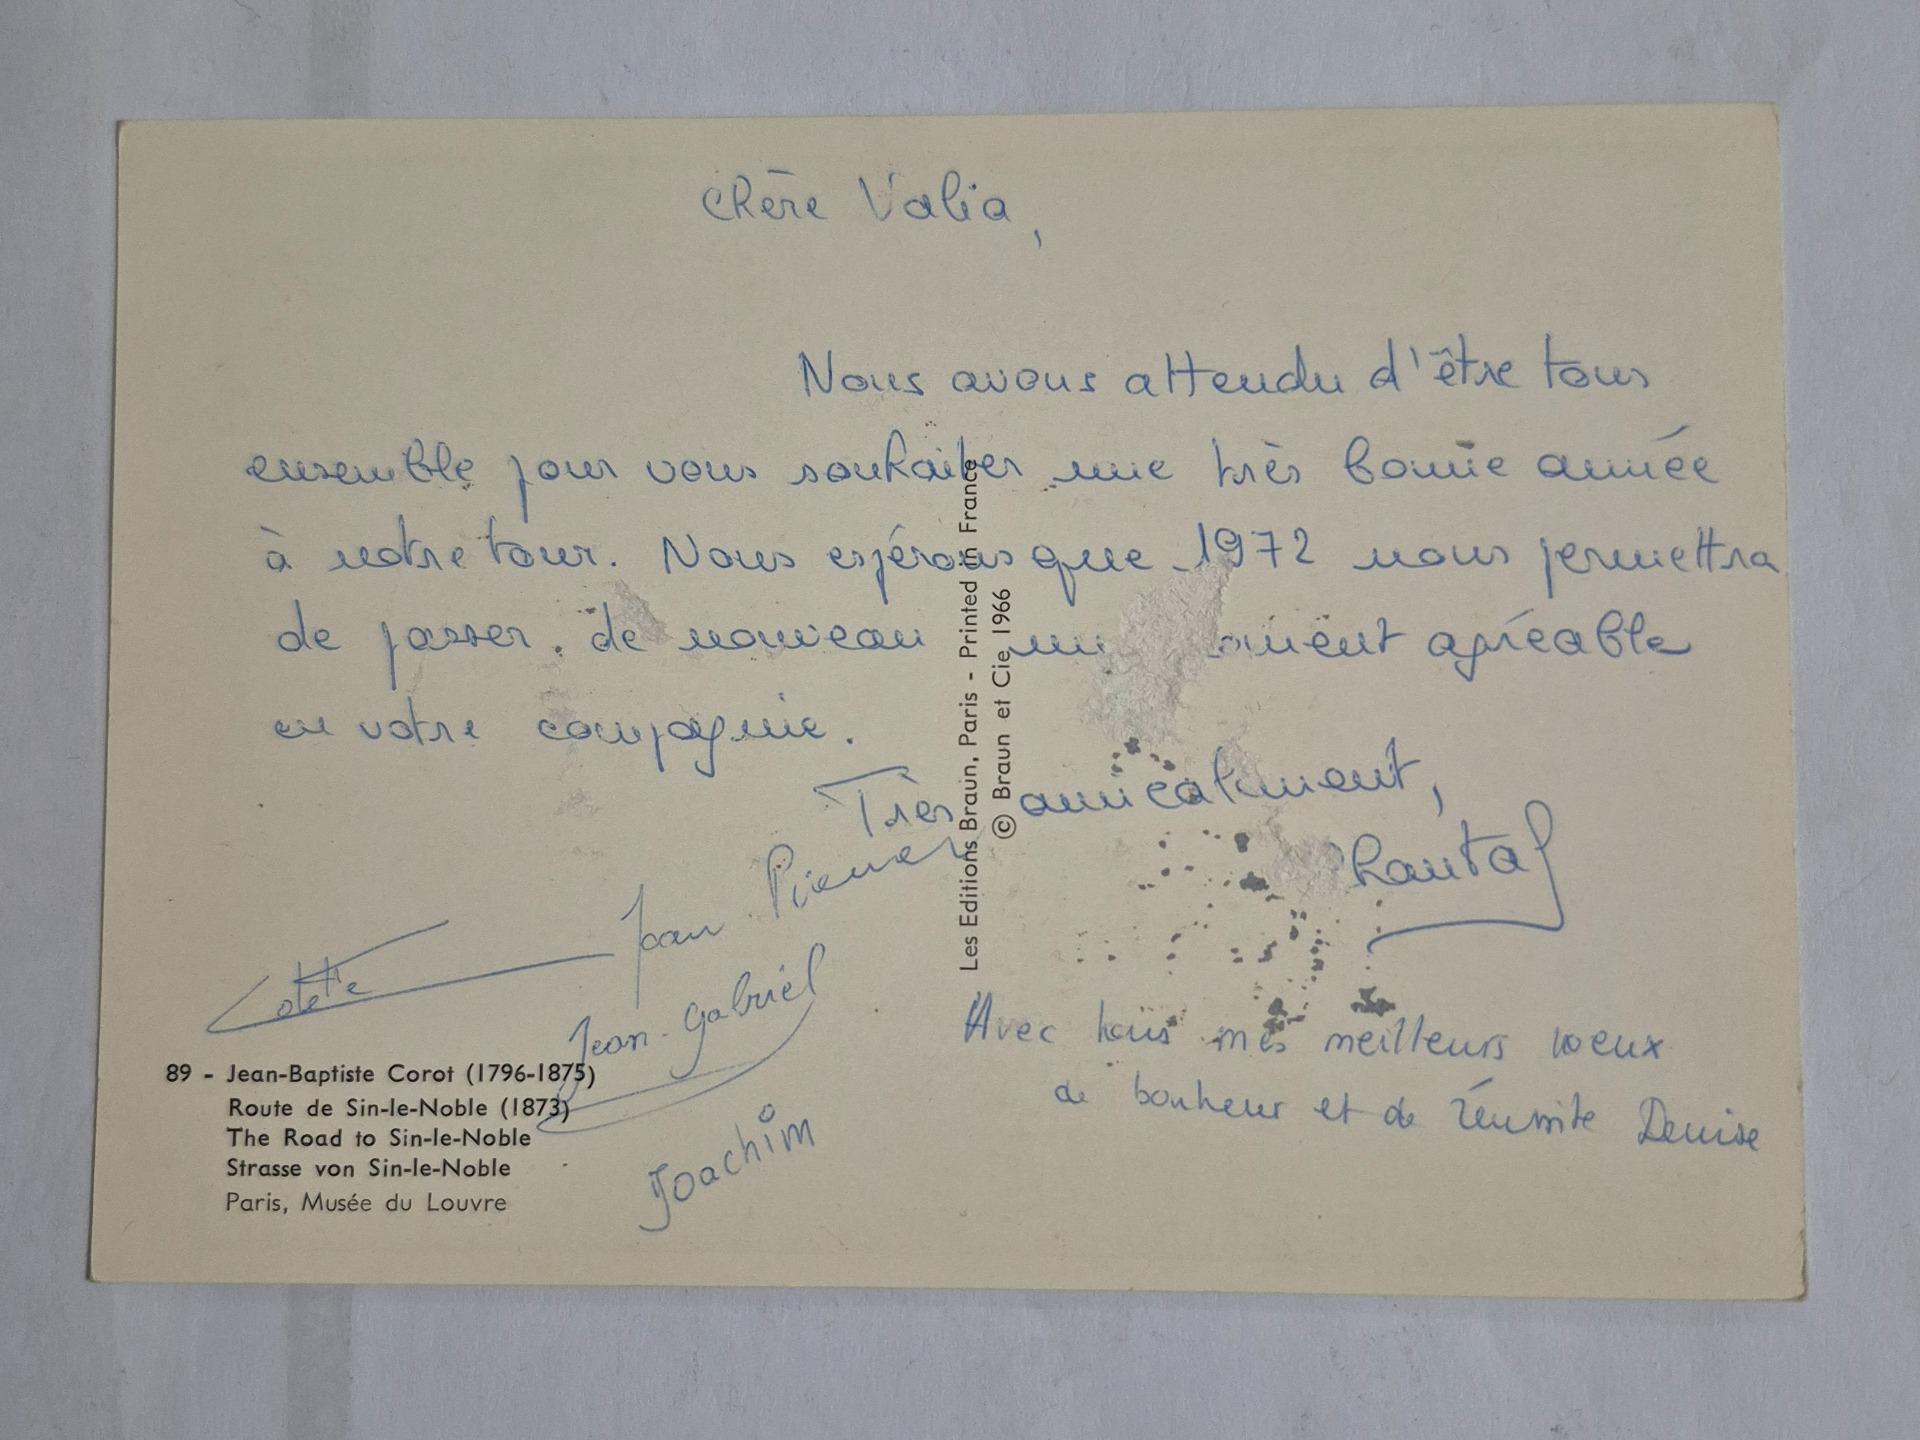 Chère Valia,
Nous avons attendu d'être tous
ensemble pour vous souhaiter une très bonne année
à notre tour. Nous espérons que 1972 nous permettra
de passer de nouveau un moment agréable
en votre compagnie.
Très amicalement,
Chantal
Jean Pierre
Colette
Jean-Gabriel
Joachim
Avec tous mes meilleurs voeux
de bonheur et de réussite Denise
89 - Jean-Baptiste Corot (1796-1875)
Route de Sin-le-Noble (1873)
The Road to Sin-le-Noble
Strasse von Sin-le-Noble
Paris, Musée du Louvre
Les Editions Braun, Paris - Printed in France
© Braun et Cie, 1966